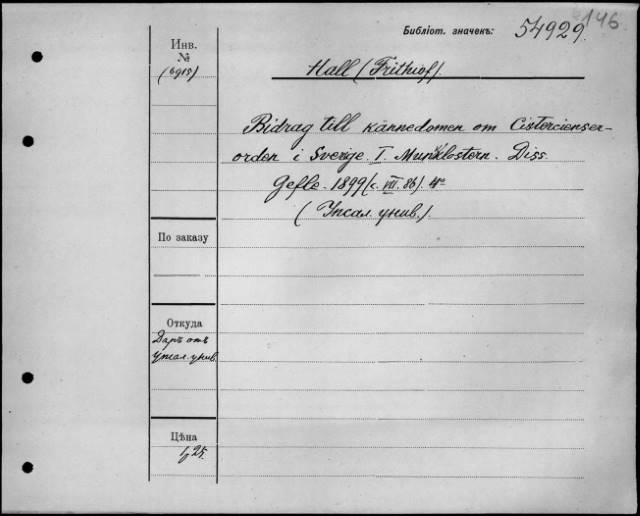 146
Библіот. значекъ: 54929.
Инв.
№
(6915)
Hall (Frithiof).
Bidrag till kännedomen om Cistercienser-
orden i Sverige. I. Munkklostern. Diss.
Gefle. 1899 (с. VIII. 86). 4º
(Упсал. унив.)
По заказу
Откуда
Даръ отъ
Упсал. унив.
Цѣна
1,25.